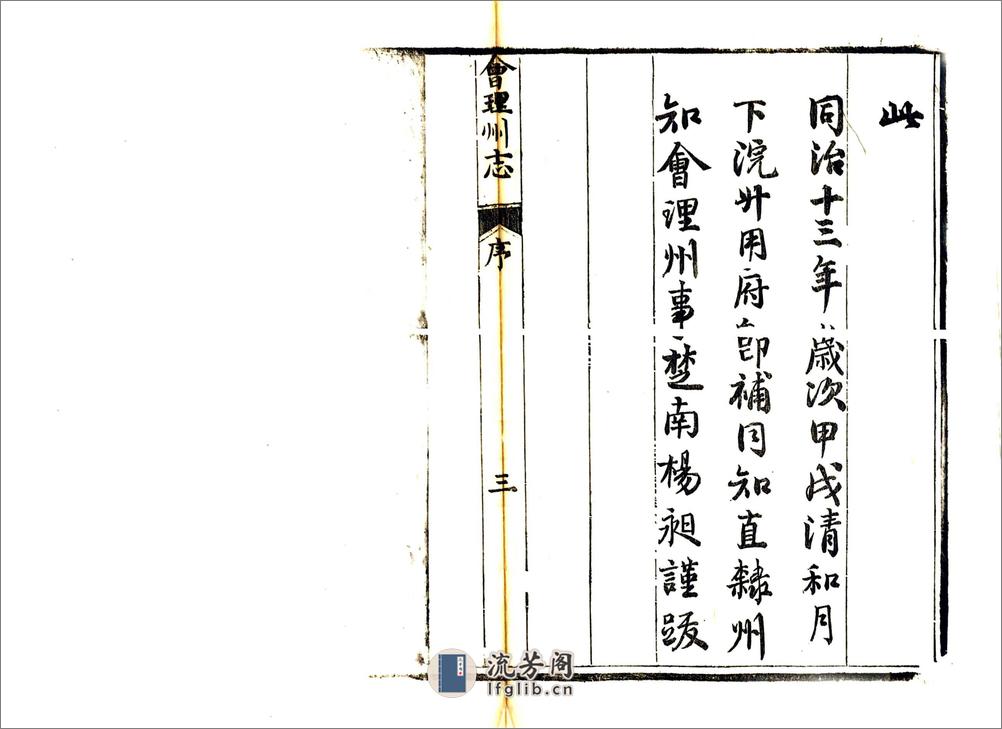 此
同治十三年歲次甲戌清和月
下浣升用府即補同知直隸州
知會理州事楚南楊昶謹跋
會理州志
序
三
流芳阁
lfglib.cn